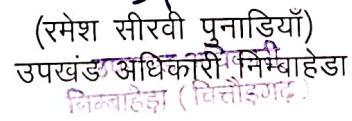 (रमेश सीरवी पुनाड़ियाँ)
उपखंड अधिकारी निम्बाहेडा
निम्बाहेड़ा (चित्तौड़गढ़)